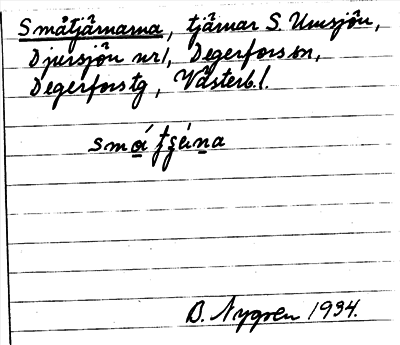 Småtjärnarna, tjärnar S. Umsjön,
Djursjön nr 1, Degerfors sn,
Degerfors tg, Västerb. l.
B. Nygren 1934.